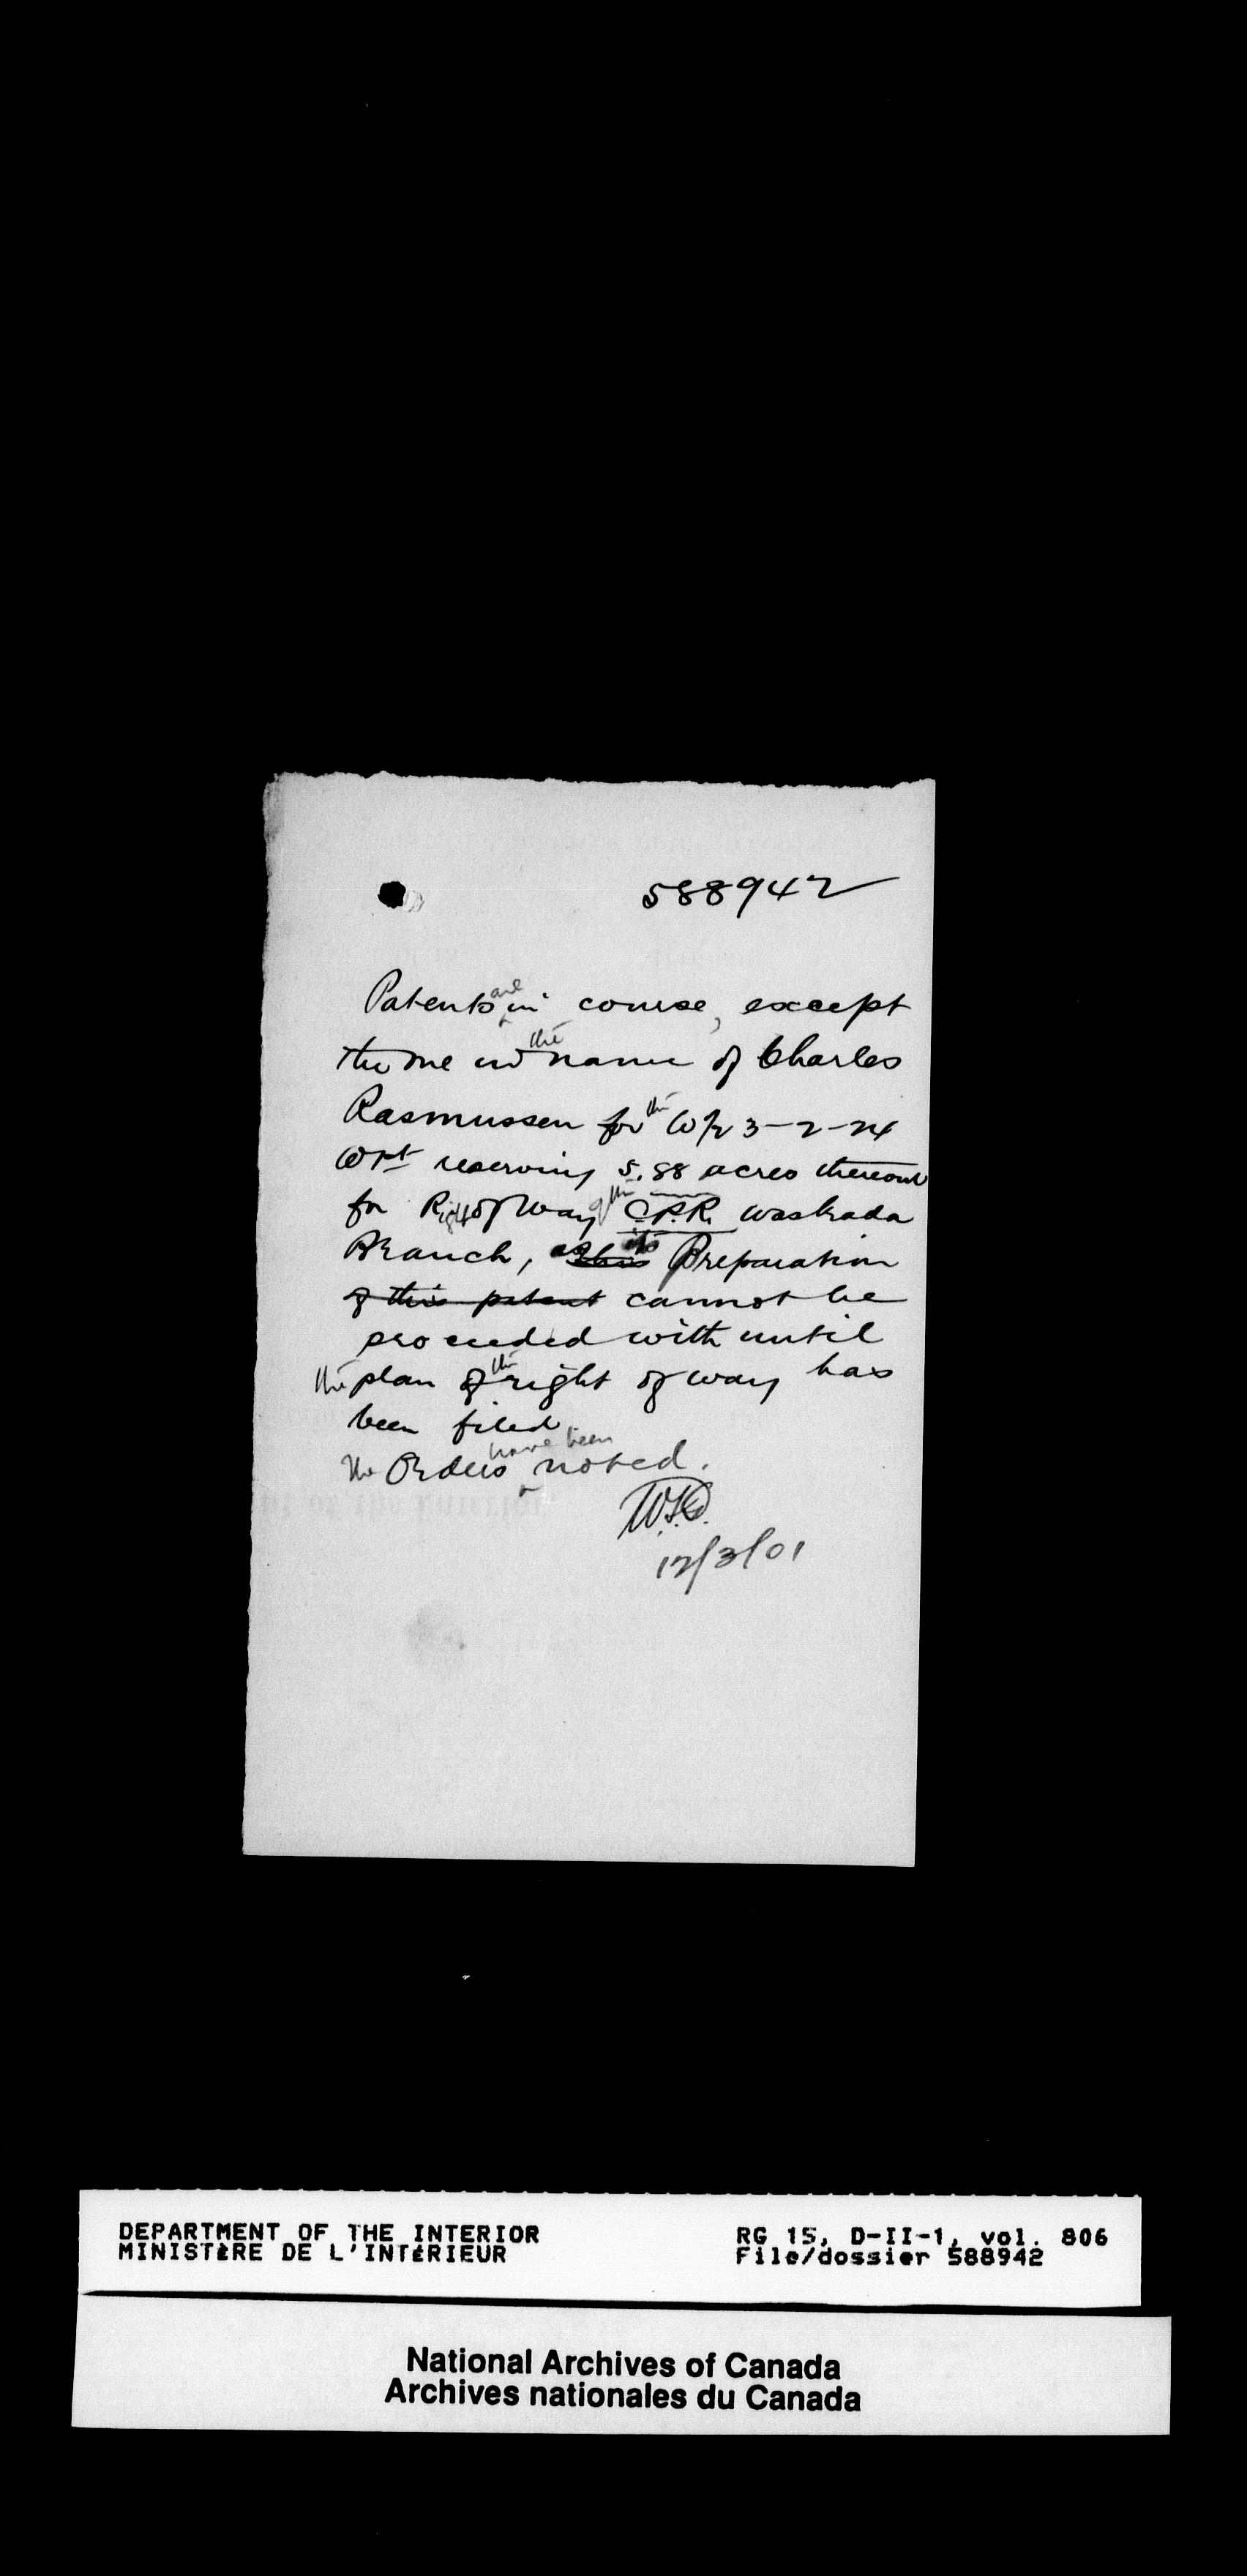 588942
Patents are in course, except
the one in the name of Charles
Rasmussen for the W/2 3-2-24
W Pt reserving 5.88 acres thereout
for Right of Way of the C.P.R. Waskada
Branch, as this its Preparation
of this patent cannot be
proceeded with until
the plan of the right of way has
been filed.
The Orders have been noted.
12/3/01
DEPARTMENT OF THE INTERIOR
MINISTÈRE DE L'INTÉRIEUR
RG 15, D-II-1, vol. 806
File/dossier 588942
National Archives of Canada
Archives nationales du Canada